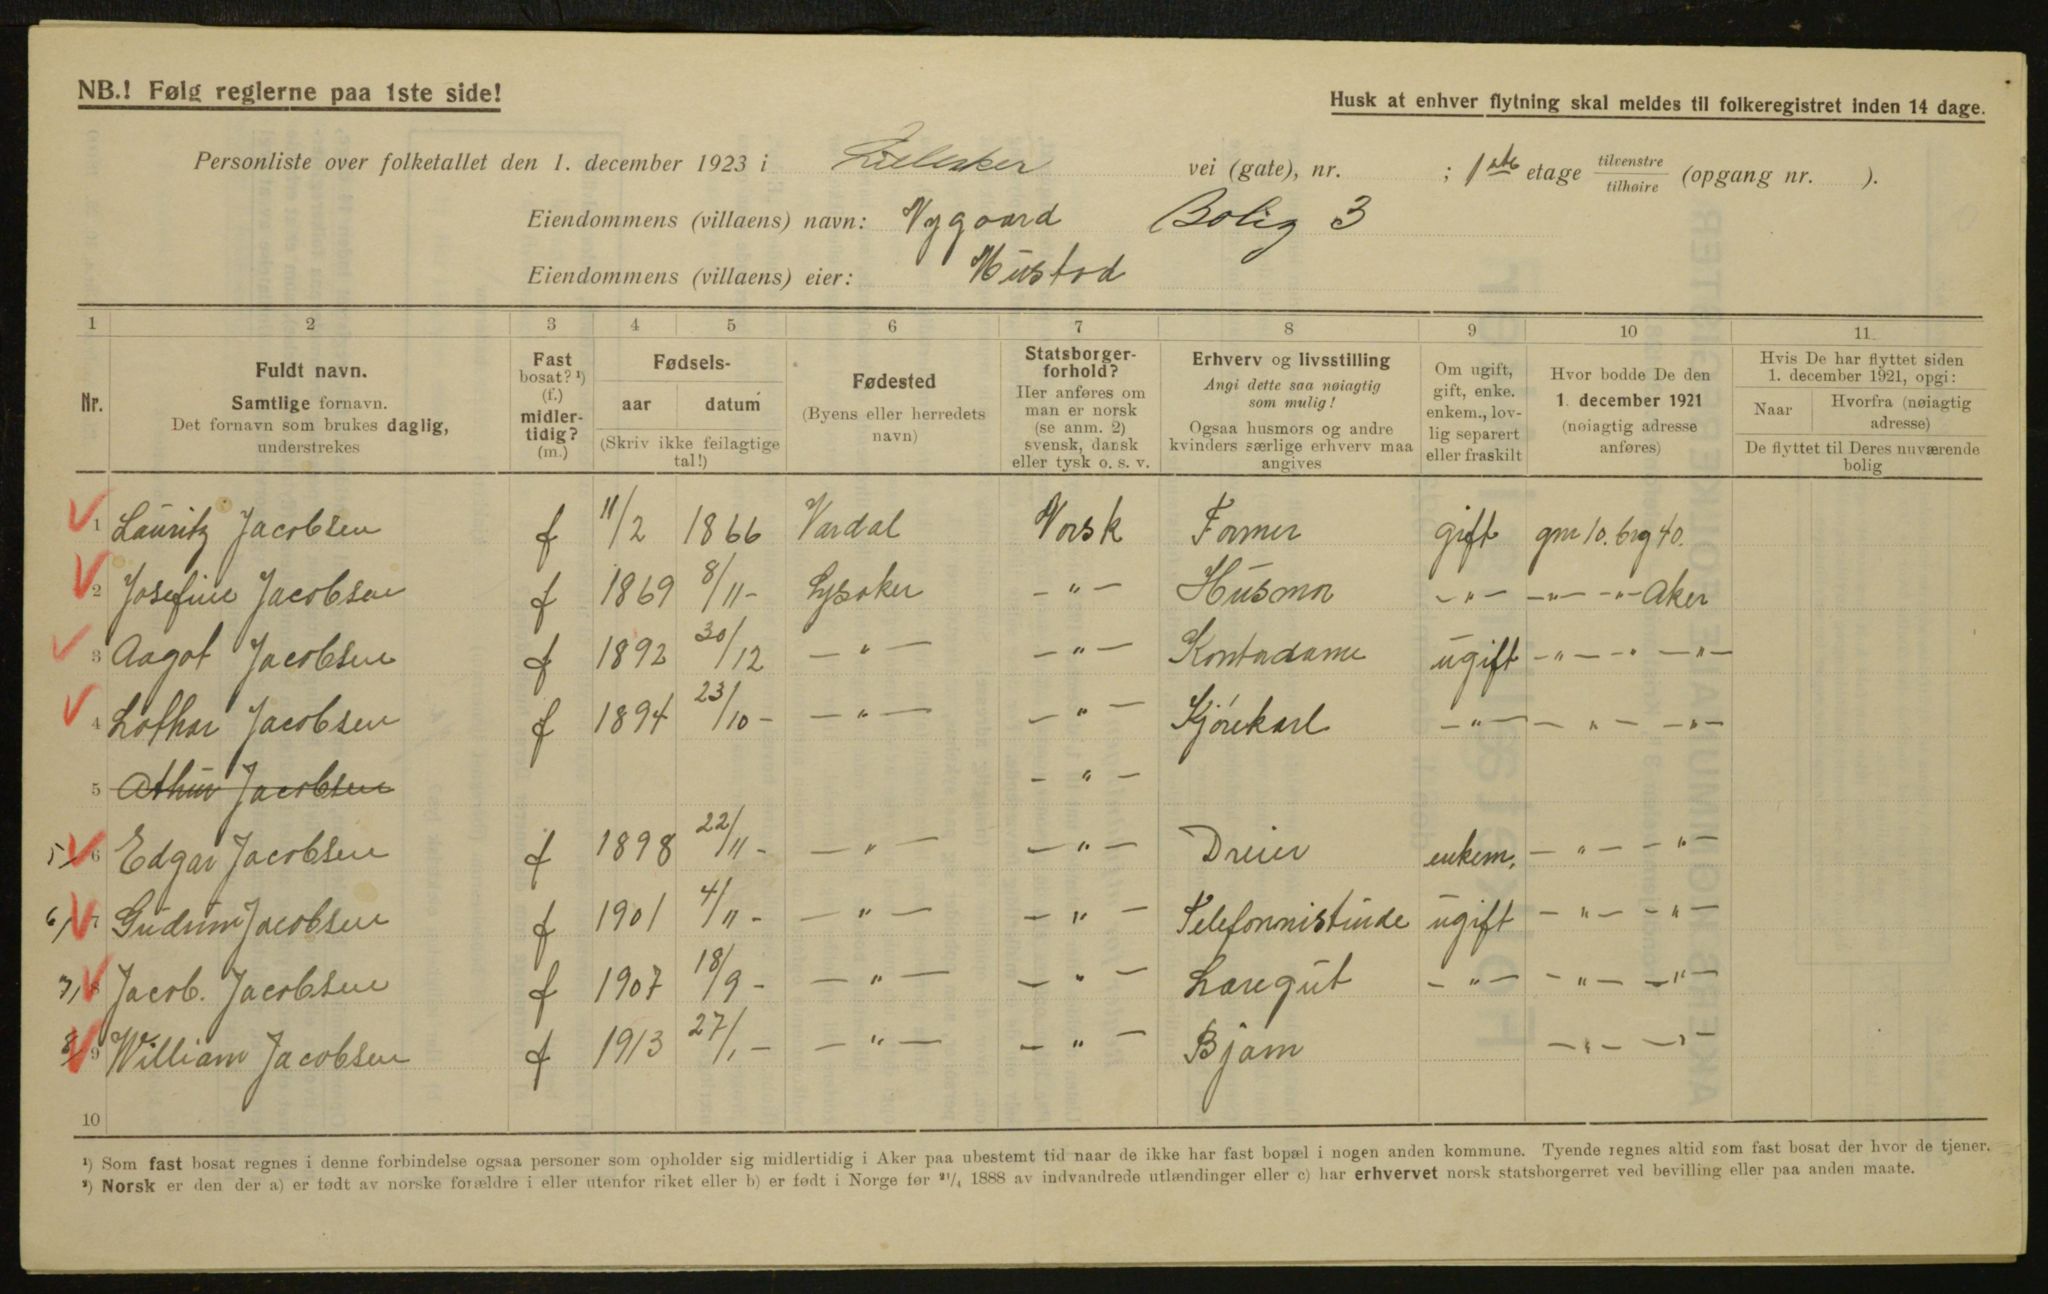 NB.! Følg reglerne paa 1ste side!
Husk at enhver flytning skal meldes til folkeregistret inden 14 dage.
Personliste over folketallet den 1. december 1923 i Lilleaker vei (gate), nr. ; 1ste etage tilvenstre tilhøire (opgang nr. ).
Eiendommens (villaens) navn: Nygaard Bolig 3
Eiendommens (villaens) eier: Mustad
1 2 3 4 5 6 7 8 9 10 11.
Nr.
Fuldt navn.
Samtlige fornavn.
Det fornavn som brukes daglig,
understrekes
Fast
bosat? ¹)
(f.)
midler-
tidig?
(m.)
Fødsels-
aar datum
(Skriv ikke feilagtige
tal!)
Fødested
(Byens eller herredets
navn)
Statsborger-
forhold?
Her anføres om
man er norsk
(se anm. 2)
svensk, dansk
eller tysk o. s. v.
Erhverv og livsstilling
Angi dette saa nøiagtig
som mulig!
Ogsaa husmors og andre
kvinders særlige erhverv maa
angives
Om ugift,
gift, enke.
enkem., lov-
lig separert
eller fraskilt
Hvor bodde De den
1. december 1921
(nøiagtig adresse
anføres)
Hvis De har flyttet siden
1. december 1921, opgi:
Naar
Hvorfra (nøiagtig
adresse)
De flyttet til Deres nuværende
bolig
1 Lauritz Jacobsen f 11/2 1866 Vardal Norsk Former gift gnr 10. brg 40.
2 Josefine Jacobsen f 1869 8/11 - Lysaker - " - Husmor - " - - " - - " - Aker
3 Aagot Jacobsen f 1892 30/12 - " - - " - Kontordame ugift - " - " - " -
4 Lothar Jacobsen f 1894 23/10 - - " - - " - Kjørekarl - " - - " - - " -
5 Athur Jacobsen - " -
5/ 6 Edgar Jacobsen f 1898 22/11 - - " - - " - Dreier enkem. - " - - " -
6/ 7 Gudrun Jacobsen f 1901 4/11 - - " - - " - Telefonnistinde ugift - " - - " -
7/ 8 Jacob. Jacobsen f 1907 18/9 - - " - - " - Læregut - " - - " - - " -
8/ 9 William Jacobsen f 1913 27/1 - - " - - " - Bjarn - " - - " -
10
¹) Som fast bosat regnes i denne forbindelse ogsaa personer som opholder sig midlertidig i Aker paa ubestemt tid naar de ikke har fast bopæl i nogen anden kommune. Tyende regnes altid som fast bosat der hvor de tjener.
²) Norsk er den der a) er født av norske forældre i eller utenfor riket eller b) er født i Norge før ²¹/₄ 1888 av indvandrede utlændinger eller c) har erhvervet norsk statsborgerret ved bevilling eller paa anden maate.